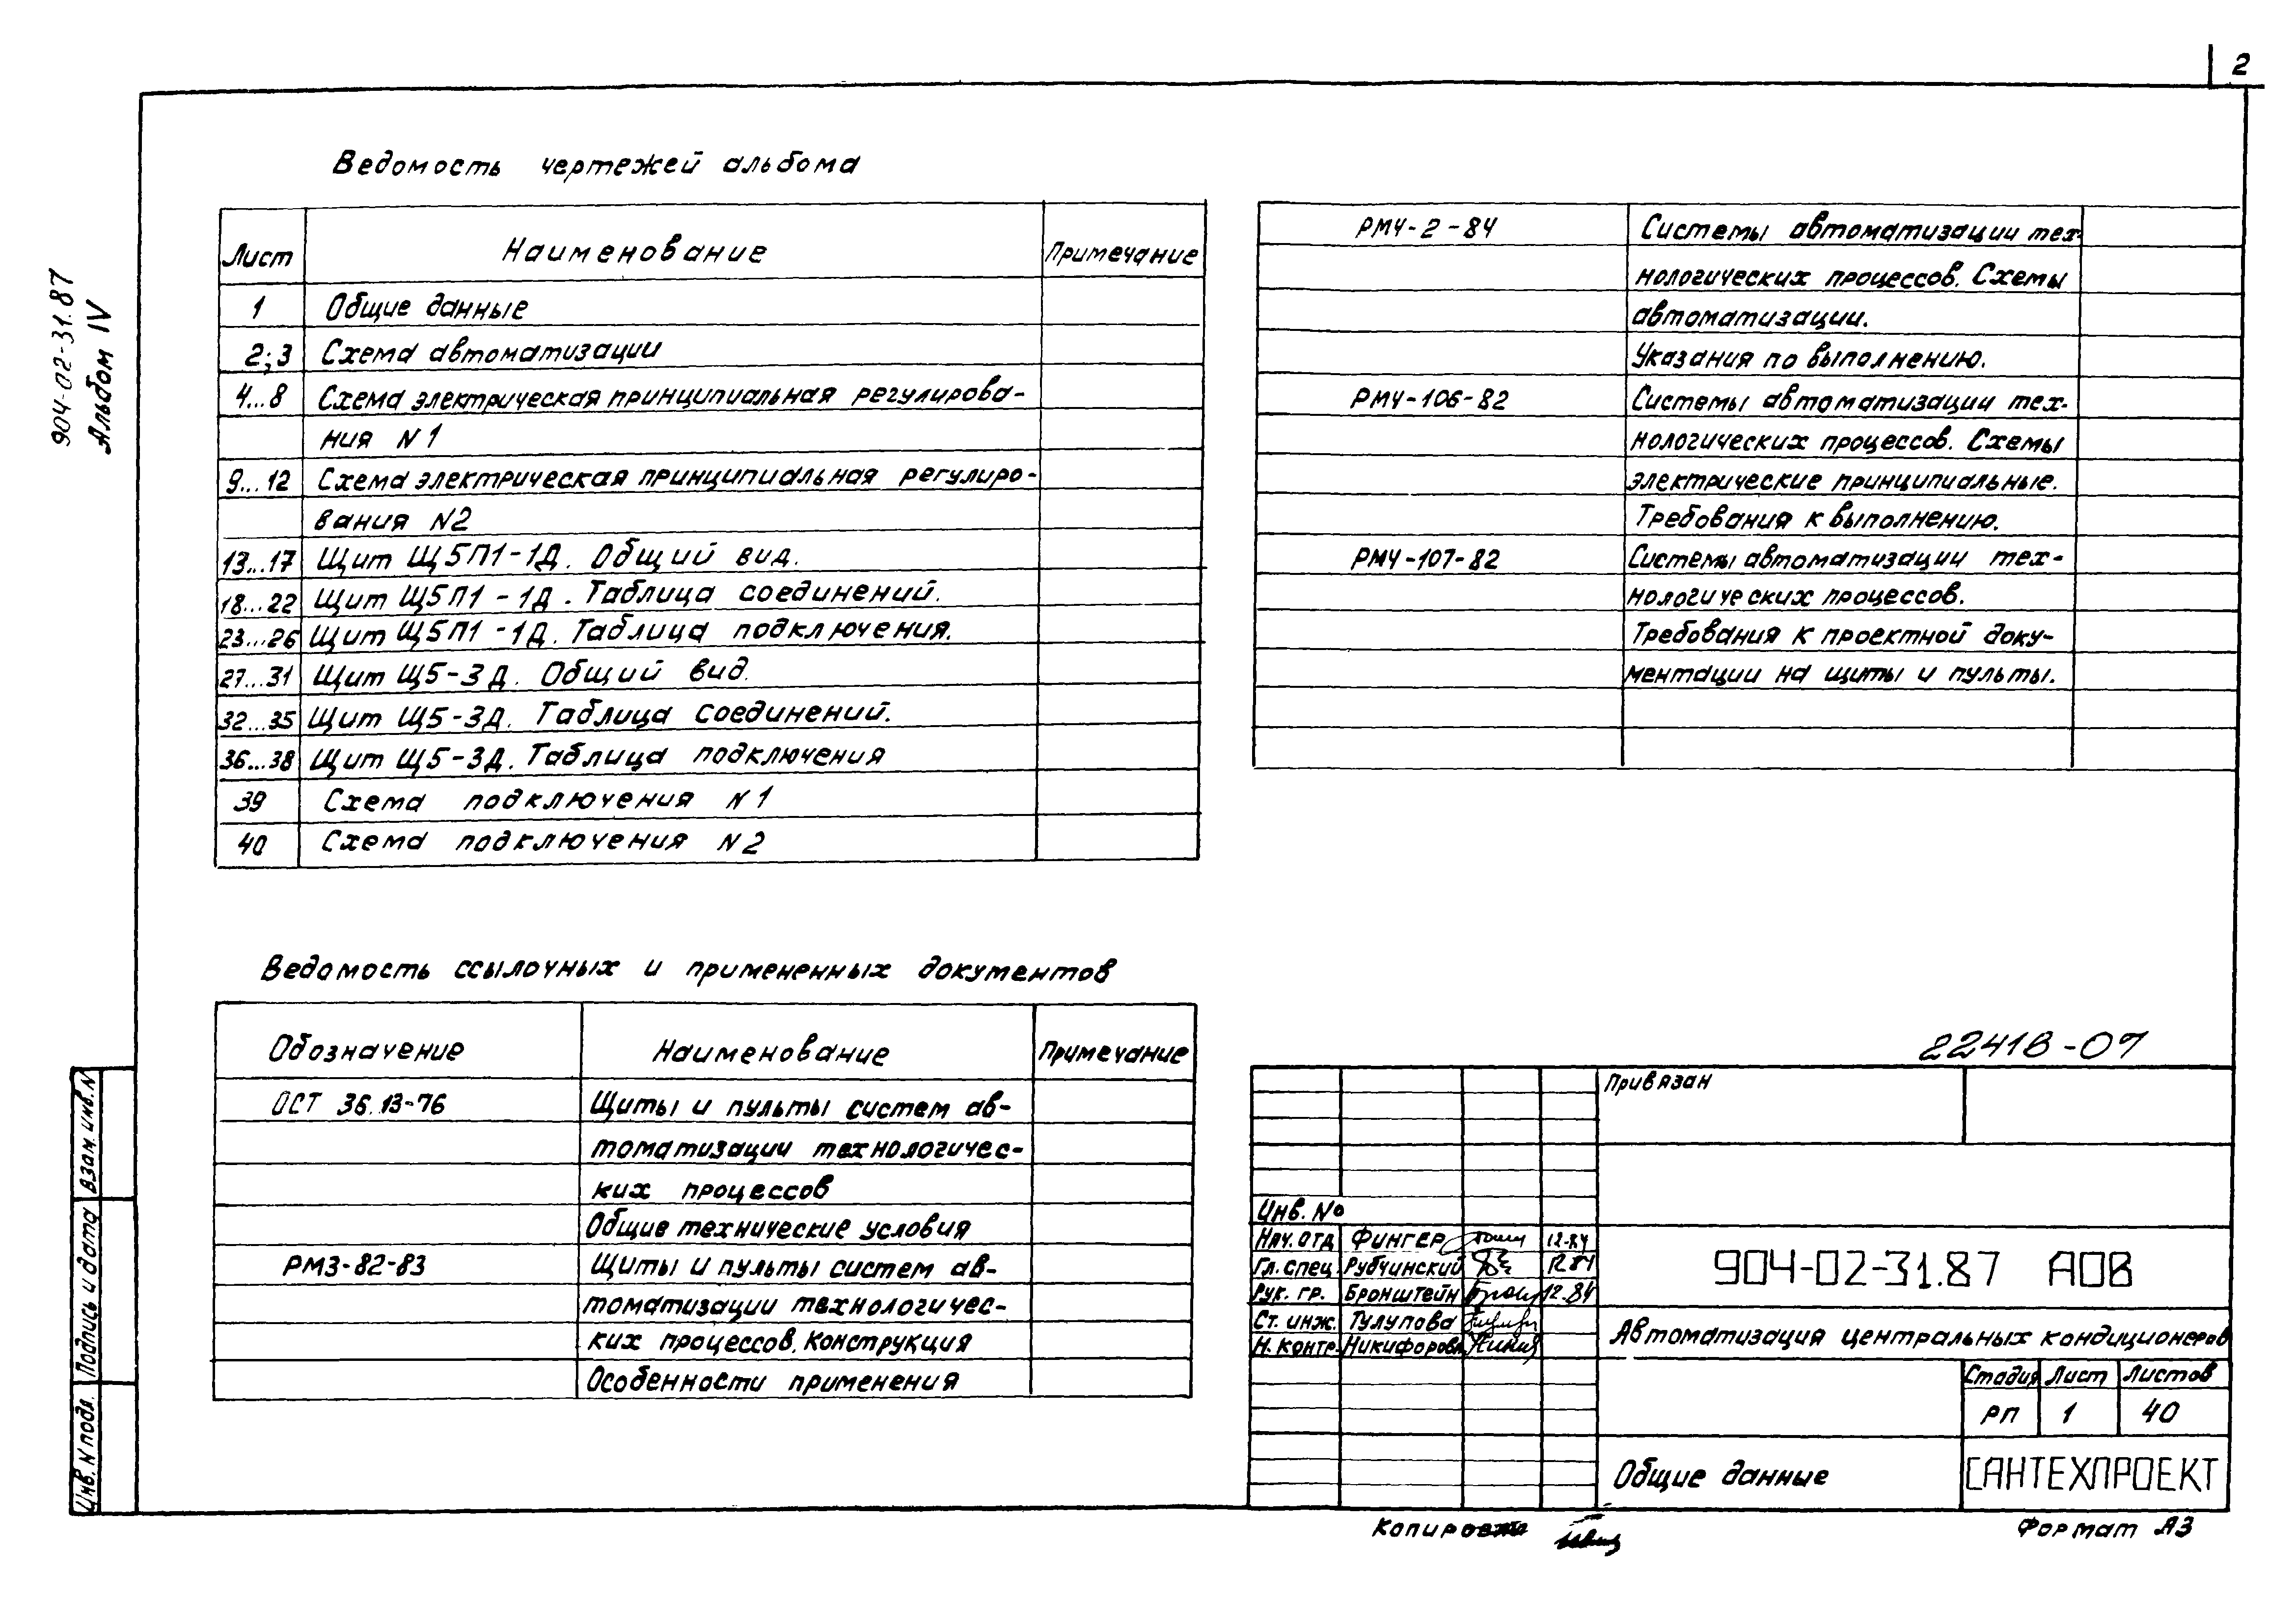 2
904-02-31.87
Альбом IV
Ведомость чертежей альбома
Лист Наименование Примечание
1 Общие данные
2;3 Схема автоматизации
4...8 Схема электрическая принципиальная регулирова-
ния N1
9...12 Схема электрическая принципиальная регулиро-
вания N2
13...17 Щит Щ5П1-1Д. Общий вид.
18...22 Щит Щ5П1-1Д. Таблица соединений.
23...26 Щит Щ5П1-1Д. Таблица подключения.
27...31 Щит Щ5-3Д. Общий вид.
32...35 Щит Щ5-3Д. Таблица соединений.
36...38 Щит Щ5-3Д. Таблица подключения
39 Схема подключения N1
40 Схема подключения N2
Ведомость ссылочных и примененных документов
Обозначение Наименование Примечание
ОСТ 36.13-76 Щиты и пульты систем ав-
томатизации технологичес-
ких процессов
Общие технические условия
РМ3-82-83 Щиты и пульты систем ав-
томатизации технологичес-
ких процессов. Конструкция
Особенности применения
РМ4-2-84 Системы автоматизации тех-
нологических процессов. Схемы
автоматизации.
Указания по выполнению.
РМ4-106-82 Системы автоматизации тех-
нологических процессов. Схемы
электрические принципиальные.
Требования к выполнению.
РМ4-107-82 Системы автоматизации тех-
нологических процессов.
Требования к проектной доку-
ментации на щиты и пульты.
22418-07
Привязан
Инв. №
Нач. отд Фингер 12.84
Гл. спец Рубчинский 12 84
Рук. гр. Бронштейн 12.84
Ст. инж. Тулупова
Н. контр. Никифорова
904-02-31.87 АОВ
Автоматизация центральных кондиционеров
Стадия Лист Листов
РП 1 40
Общие данные
САНТЕХПРОЕКТ
Взам. инв. N
Подпись и дата
Инв. N подл.
Копировал
Формат А3